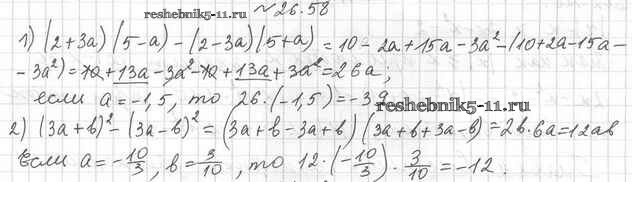 reshebnik5-11.ru №26.58
1) (2+3a)(5-a)-(2-3a)(5+a)=10-2a+15a-3a²-(10+2a-15a-
-3a²)=10+13a-3a²-10+13a+3a²=26a;
если a=-1,5, то 26·(-1,5)=-39
reshebnik5-11.ru
2) (3a+b)²-(3a-b)²=(3a+b-3a+b)(3a+b+3a-b)=2b·6a=12ab
Если a=-10/3, b=3/10, то 12·(-10/3)·3/10=-12.